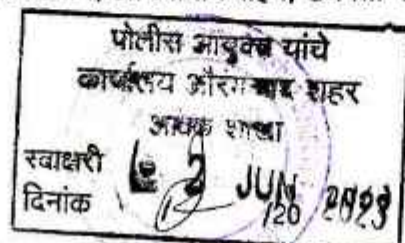 पोलीस आयुक्त यांचे
कार्यालय औरंगाबाद शहर
आवक शाखा
स्वाक्षरी
दिनांक 2 JUN 2023
/20